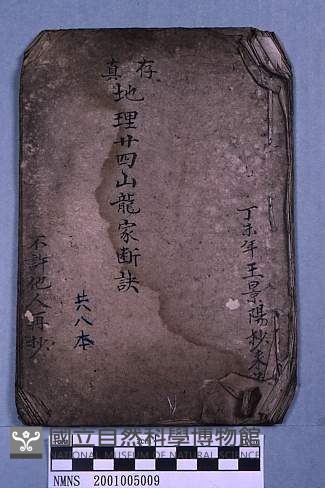 存真
地理廿四山龍家断訣
丁未年王景陽抄
共八本
不許他人再抄
國立自然科學博物館
NATIONAL MUSEUM OF NATURAL SCIENCE
NMNS 2001005009